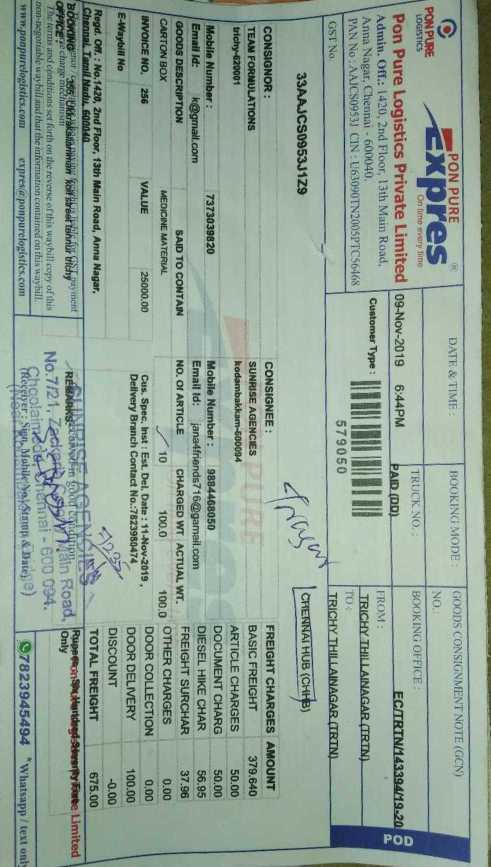 PON PURE
LOGISTICS
PON PURE
Expres ®
On time every time
Pon Pure Logistics Private Limited
Admin. Off.: 1420, 2nd Floor, 13th Main Road,
Anna Nagar, Chennai - 600040.
PAN No : AAJCS0953J CIN : U63090TN2005PTC56468
GST No.
33AAJCS0953J1Z9
DATE & TIME :
09-Nov-2019 6:44PM
Customer Type :
579050
BOOKING MODE :
PAID (DD)
TRUCK NO. :
GOODS CONSIGNMENT NOTE (GCN)
NO.:
EC/TRTN/143394/19-20
BOOKING OFFICE :
TRICHY THILLAINAGAR (TRTN)
FROM :
TRICHY THILLAINAGAR (TRTN)
TO :
CHENNAI HUB (CHHB)
POD
CONSIGNOR :
TEAM FORNULATIONS
trichy-620001
Mobile Number : 7373039820
Email Id: k@gmail.com
CONSIGNEE :
SUNRISE AGENCIES
kodambakkam-600094
Mobile Number : 9884468050
Email Id: jana4friends716@gamail.com
GOODS DESCRIPTION SAID TO CONTAIN NO. Of ARTICLE CHARGED WT ACTUAL WT.
CARTON BOX MEDICINE MATERIAL 10 100.0 100.0
INVOICE NO. 256 VALUE 25000.00
E-Waybill No
Cus. Spec. Inst : Est. Del. Date : 11-Nov-2019 ,
Delivery Branch Contact No.:7823980474
FREIGHT CHARGES AMOUNT
BASIC FREIGHT 379.640
ARTICLE CHARGES 50.00
DOCUMENT CHARG 50.00
DIESEL HIKE CHAR 56.95
FREIGHT SURCHAR 37.96
OTHER CHARGES 0.00
DOOR COLLECTION 0.00
DOOR DELIVERY 100.00
DISCOUNT -0.00
TOTAL FREIGHT 675.00
Only
Regd. Off : No.1420, 2nd Floor, 13th Main Road, Anna Nagar,
Chennai, Tamil Nadu, 600040
BOOKING
OFFICE
The terms and conditions set forth on the reverse of this waybill copy of this
non-negotiable waybill and that the information contained on this waybill.
SUNRISE AGENCIES
Main Road,
Choolaimedu, Chennai - 600 094.
www.ponpurelogistics.com expres@ponpurelogistics.com
7823945494 *Whatsapp / text only